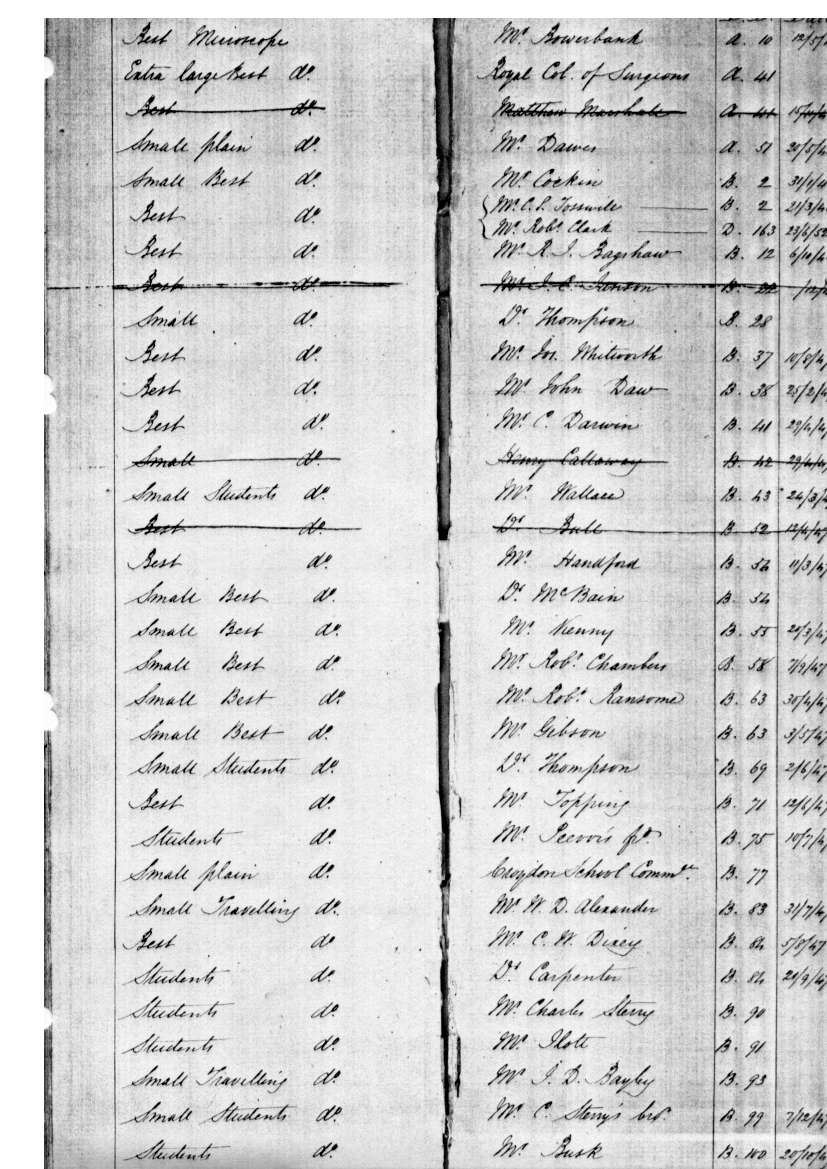 Best Microscope Mr. Bowerbank A. 10
Extra large Best do. Royal Col. of Surgeons A. 41
Best do. Matthew Marshall A. 41
Small plain do. Mr. Dawes A. 51
Small Best do. Mr. Cockin B. 2
Best do. Mr. C. S. B. 2
Mr. Robt. Clark D. 163 23/6/52
Best do. Mr. R. J. Bagshaw B. 12
Best do. Mr. J. C. B. 22
Small do. Dr. Thompson B. 28
Best do. Mr. Jos. Whitworth B. 37
Best do. Mr. John Daw B. 38 25/2/4
Best do. Mr. C. Darwin B. 41 29/4/4
Small do. Henry Callaway B. 42 29/4/4
Small Students do. Mr. Wallace B. 43 24/3/4
Best do. Dr. Ball B. 52 12/4/47
Best do. Mr. Handford B. 54 11/3/47
Small Best do. Dr. McBain B. 54
Small Best do. Mr. Kenny B. 55
Small Best do. Mr. Robt. Chambers B. 58 7/9/47
Small Best do. Mr. Robt. Ransome B. 63 30/4/47
Small Best do. Mr. Gibson B. 63 3/5/47
Small Students do. Dr. Thompson B. 69 2/6/47
Best do. Mr. Topping B. 71 12/6/47
Students do. Mr. B. 75 10/7/4
Small plain do. Croydon School B. 77
Small Travelling do. Mr. W. D. Alexander B. 83 31/7/4
Best do Mr. C. W. Dixey B. 84 5/8/47
Students do. Dr. Carpenter B. 84
Students do. Mr. Charles Sterry B. 90
Students do. Mr. Ilott B. 91
Small Travelling do. Mr. J. D. Bayley B. 93
Small Students do. Mr. C. Sterry's bro. B. 99 7/12/4
Students do. Mr. Busk B. 100